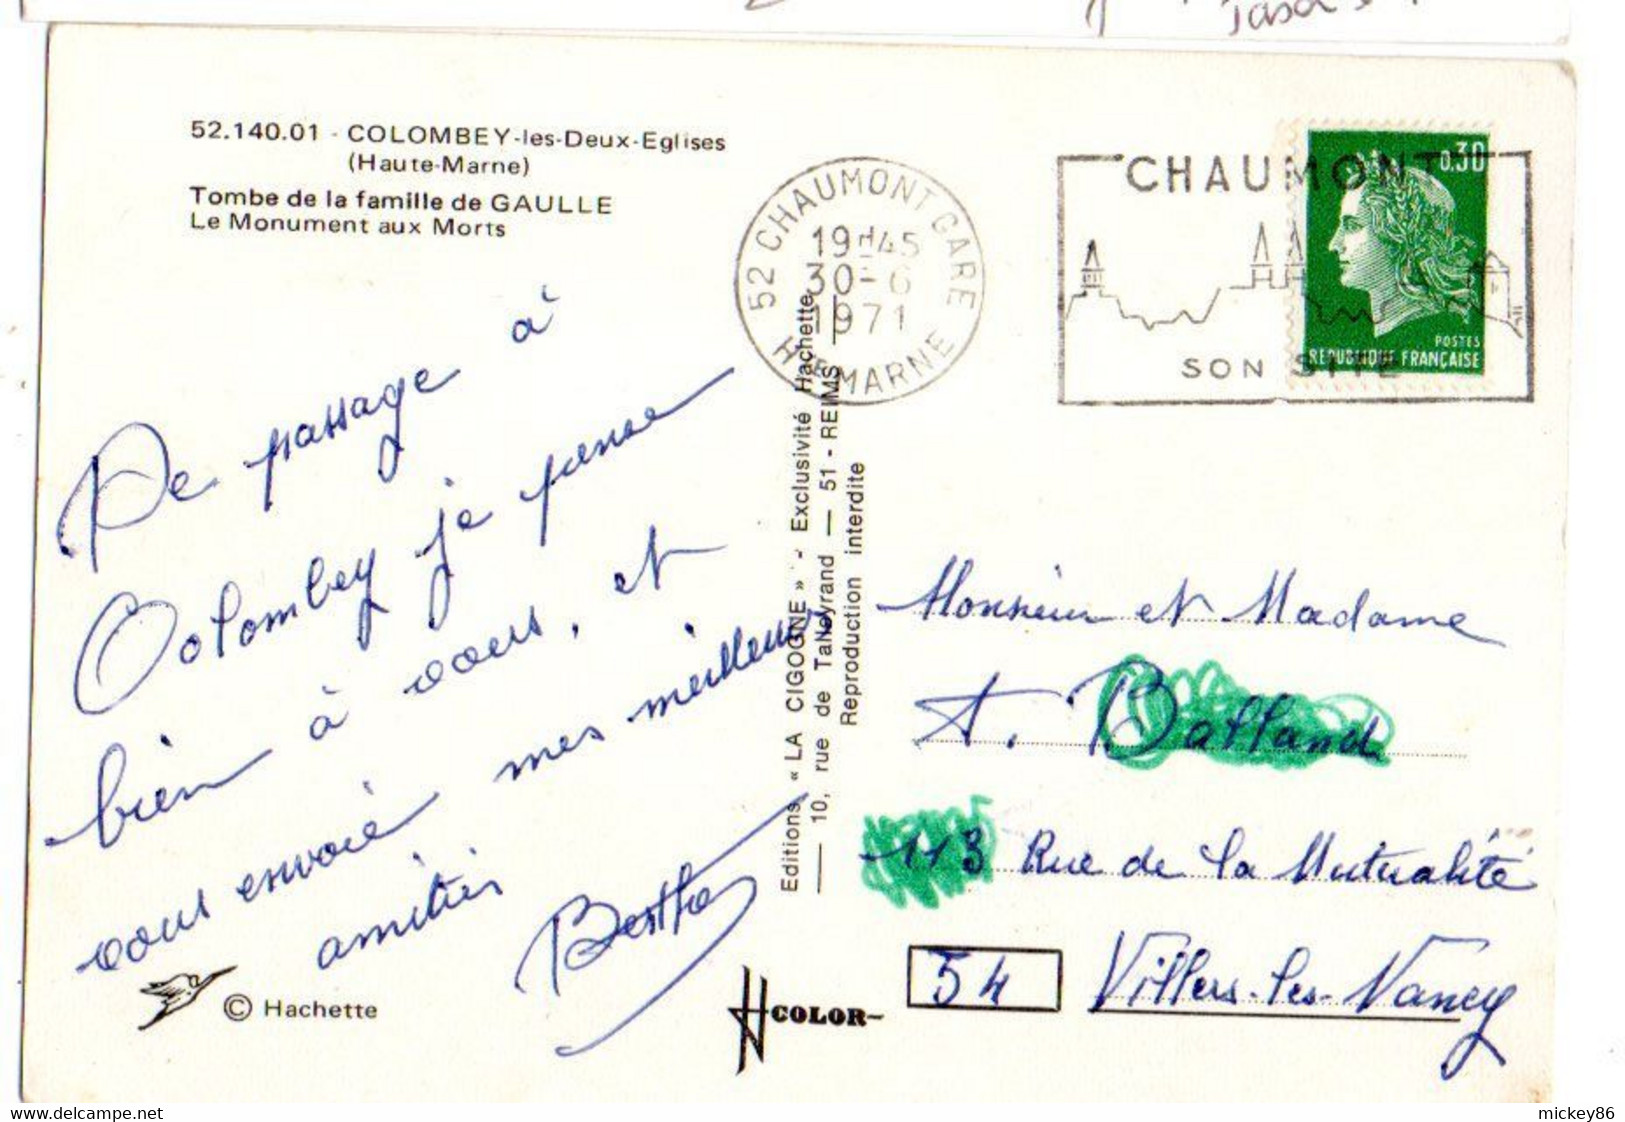 52.140.01 - COLOMBEY-les-Deux-Eglises
(Haute-Marne)
Tombe de la famille de GAULLE
Le Monument aux Morts
De passage à
Colombey je pense
bien à vous, et
vous envoie mes meilleures
amitiés
Berthe
© Hachette
Editions « LA CIGOGNE » - Exclusivité Hachette
— 10, rue de Talleyrand — 51 - REIMS —
Reproduction interdite
COLOR
52 CHAUMONT GARE
19H45
30-6
1971
HTE MARNE
CHAUMONT
SON SITE
0,30
POSTES
REPUBLIQUE FRANÇAISE
Monsieur et Madame
A. Balland
113 Rue de la Mutualité
54 Villers-les-Nancy
mickey86